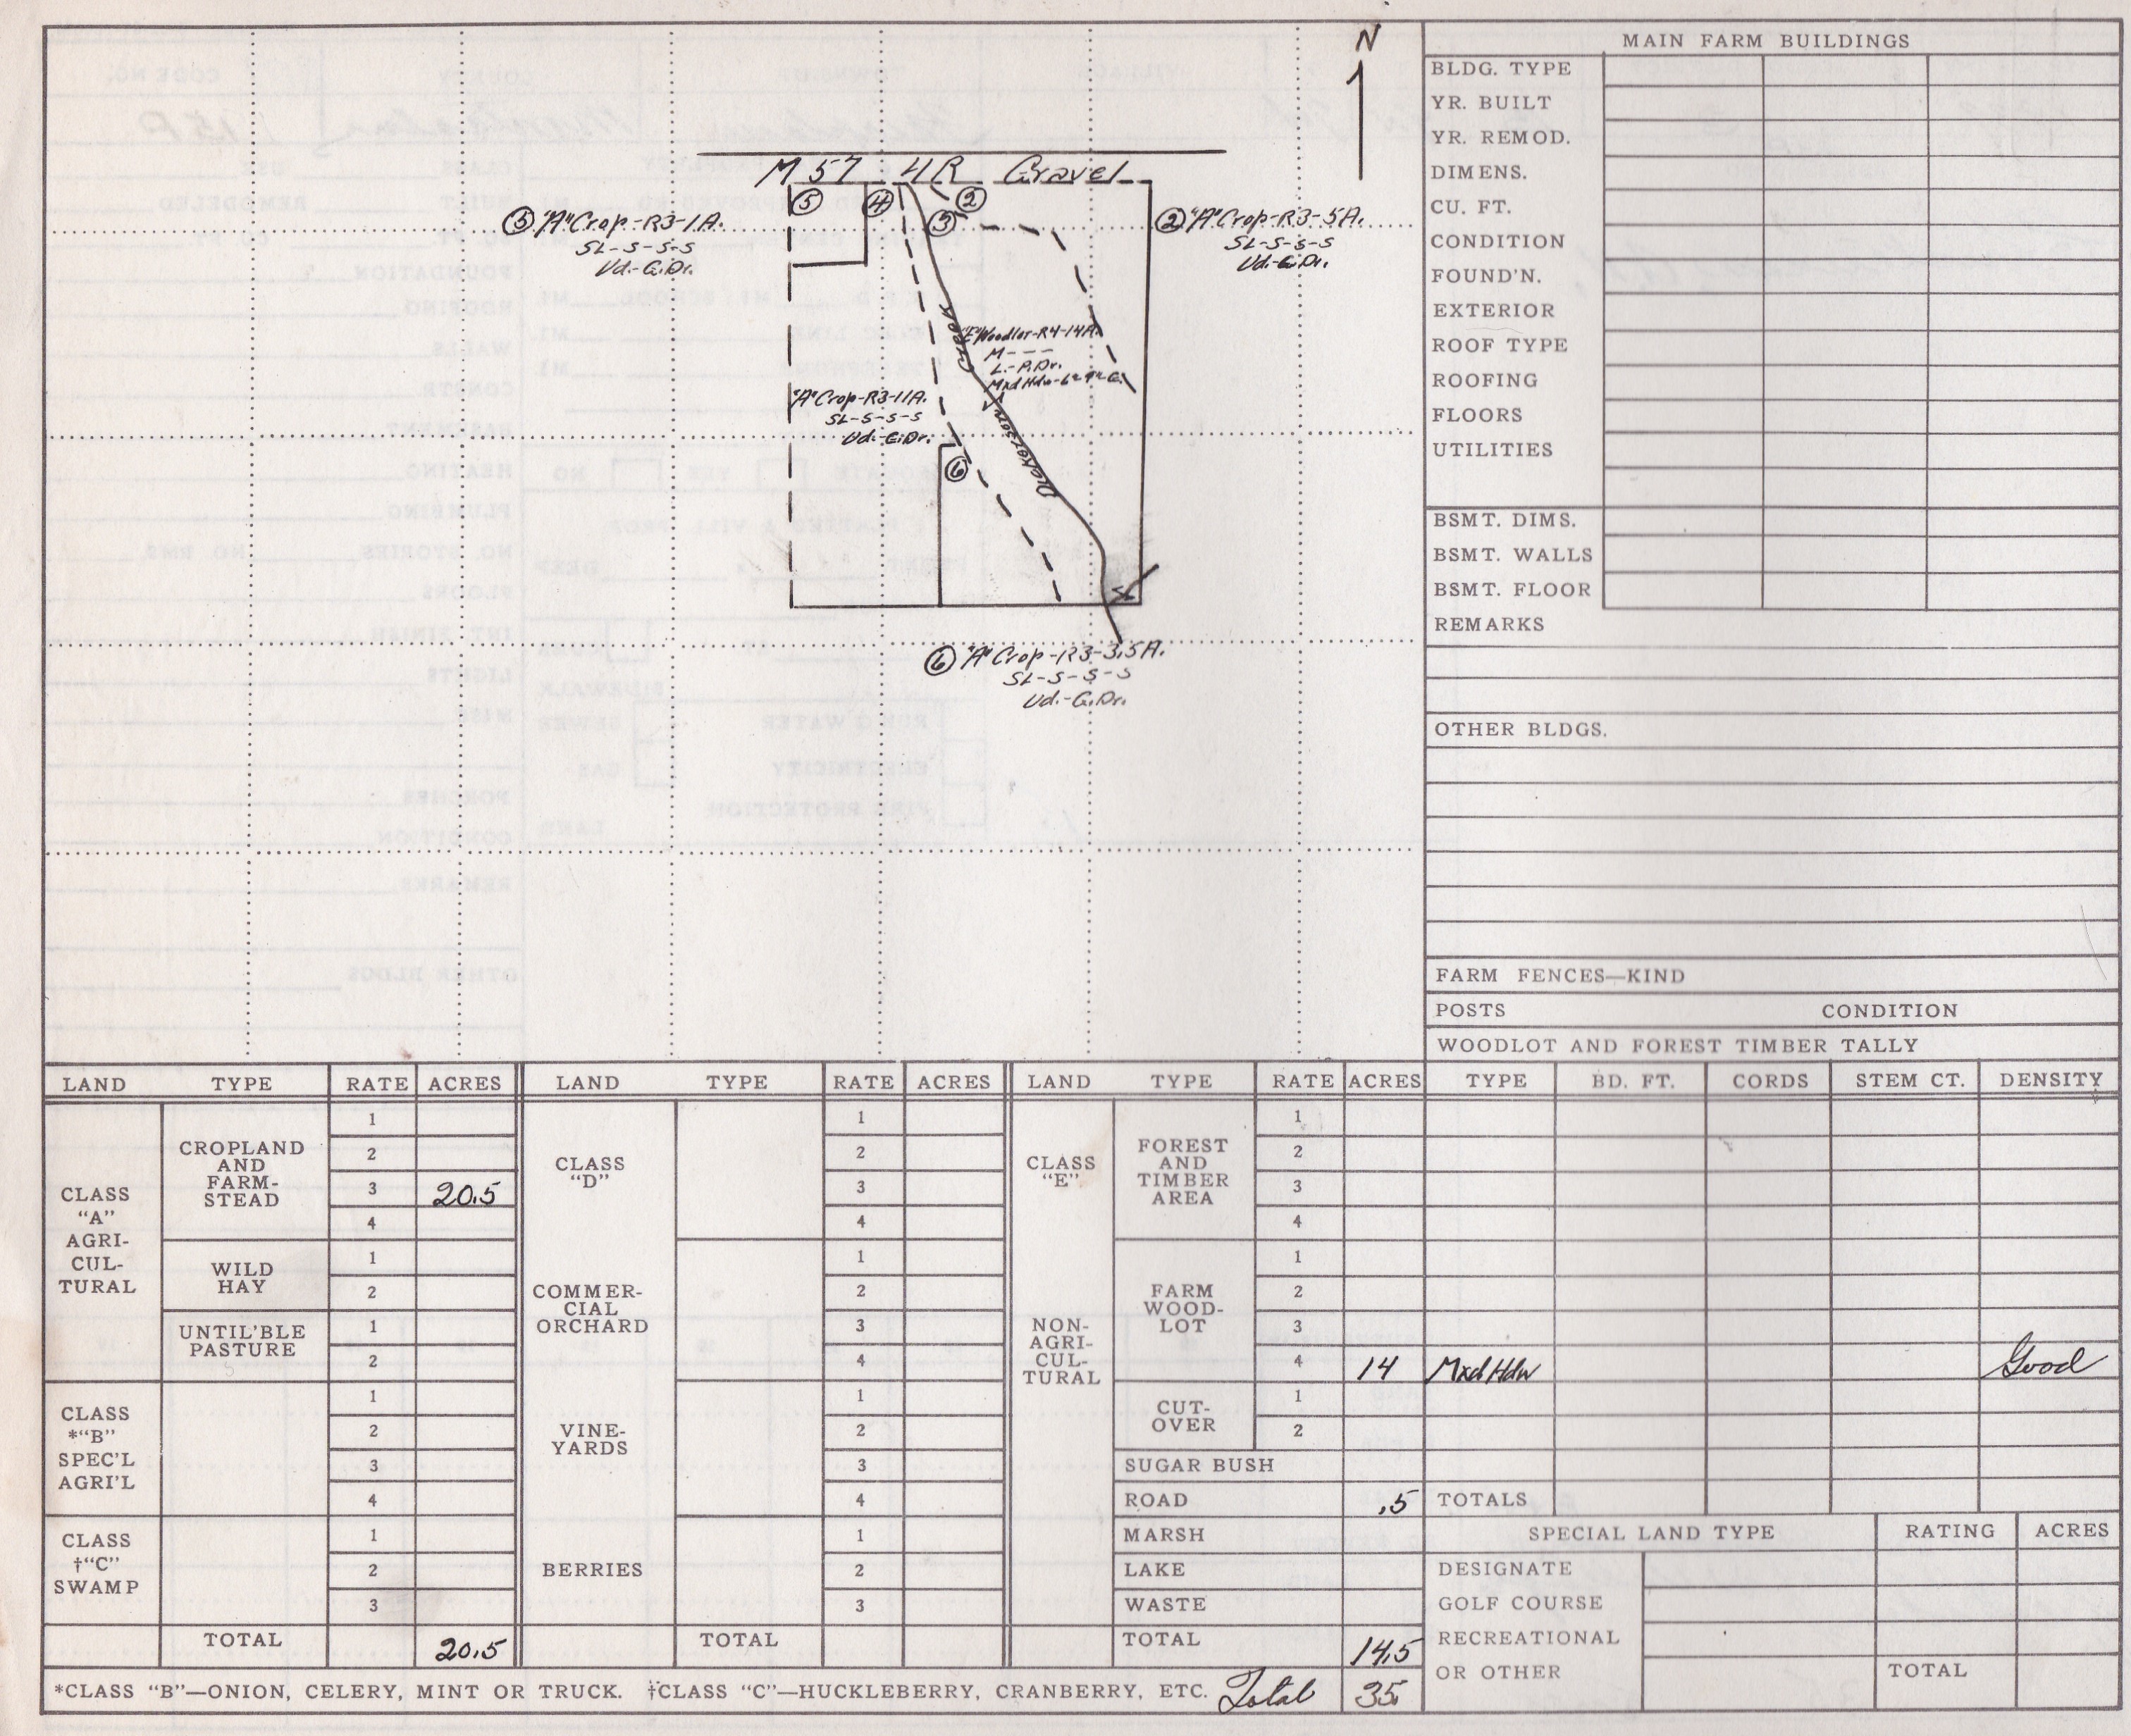 N
M 57 4R Gravel
⑤ ④ ③ ②
⑤ "A" Crop-R3-1A.
SL-S-S-S
Ud.-G.Dr.
② "A" Crop-R3-5A.
SL-S-S-S
Ud.-G.Dr.
"E" Woodlot-R4-14A.
M- - - -
L.-P.Dr.
Mxd Hdw-6"-9"-G.
"A" Crop-R3-11A.
SL-S-S-S
Ud.-G.Dr.
⑥
⑥ "A" Crop-R3-3.5A.
SL-S-S-S
Ud.-G.Dr.
MAIN FARM BUILDINGS
BLDG. TYPE
YR. BUILT
YR. REMOD.
DIMENS.
CU. FT.
CONDITION
FOUND'N.
EXTERIOR
ROOF TYPE
ROOFING
FLOORS
UTILITIES
BSMT. DIMS.
BSMT. WALLS
BSMT. FLOOR
REMARKS
OTHER BLDGS.
FARM FENCES—KIND
POSTS CONDITION
WOODLOT AND FOREST TIMBER TALLY
LAND TYPE RATE ACRES LAND TYPE RATE ACRES LAND TYPE RATE ACRES TYPE BD. FT. CORDS STEM CT. DENSITY
CLASS
"A"
AGRI-
CUL-
TURAL
CROPLAND
AND
FARM-
STEAD
1
2
3 20.5
4
WILD
HAY
1
2
UNTIL'BLE
PASTURE
1
2
CLASS
*"B"
SPEC'L
AGRI'L
1
2
3
4
CLASS
†"C"
SWAMP
1
2
3
TOTAL 20.5
CLASS
"D"
1
2
3
4
COMMER-
CIAL
ORCHARD
1
2
3
4
VINE-
YARDS
1
2
3
4
BERRIES
1
2
3
TOTAL
CLASS
"E"
NON-
AGRI-
CUL-
TURAL
FOREST
AND
TIMBER
AREA
1
2
3
4
FARM
WOOD-
LOT
1
2
3
4 14 Mxd Hdw Good
CUT-
OVER
1
2
SUGAR BUSH
ROAD .5 TOTALS
MARSH
LAKE
WASTE
TOTAL 14.5
SPECIAL LAND TYPE RATING ACRES
DESIGNATE
GOLF COURSE
RECREATIONAL
OR OTHER
TOTAL
*CLASS "B"—ONION, CELERY, MINT OR TRUCK. †CLASS "C"—HUCKLEBERRY, CRANBERRY, ETC. Total 35.